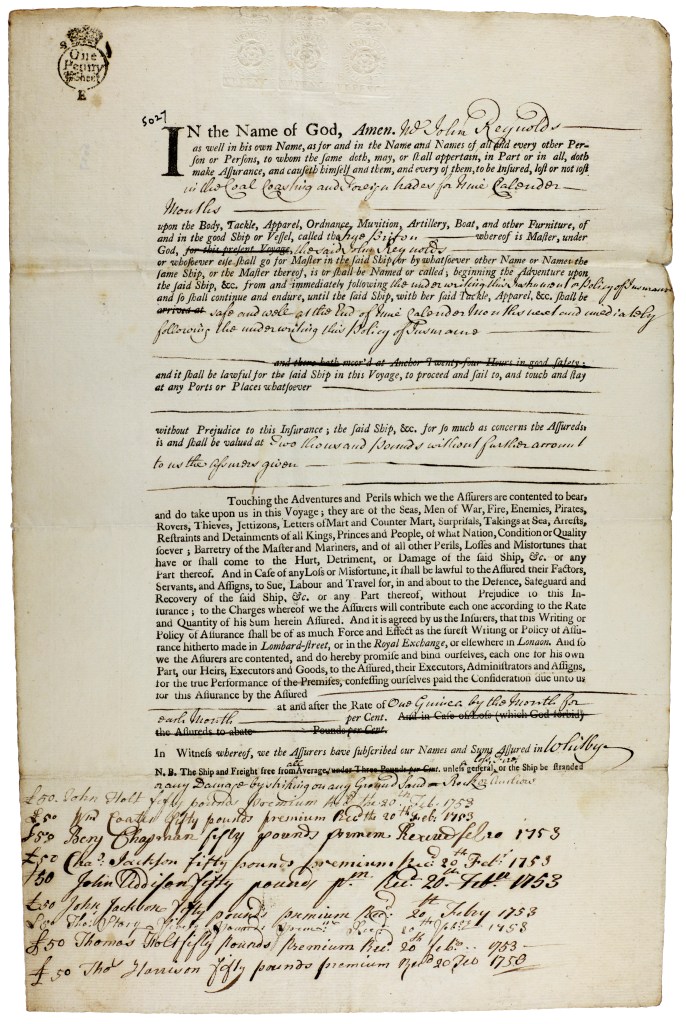 One
Penny
Sheet
E
5027
IN the Name of God, Amen. We John Reynolds
as well in his own Name, as for and in the Name and Names of all and every other Per-
son or Persons, to whom the same doth, may, or shall appertain, in Part or in all, doth
make Assurance, and causeth himself and them, and every of them, to be Insured, lost or not lost
in the Coal Coasting and Foreign trades for Nine Calender
Months
upon the Body, Tackle, Apparel, Ordnance, Munition, Artillery, Boat, and other Furniture, of
and in the good Ship or Vessel, called the whereof is Master, under
God, for this present Voyage, the said John Reynolds
or whosoever else shall go for Master in the said Ship, or by whatsoever other Name or Names the
same Ship, or the Master thereof, is or shall be Named or called; beginning the Adventure upon
the said Ship, &c. from and immediately following the underwriting this Instrument or Policy of Insurance
and so shall continue and endure, until the said Ship, with her said Tackle, Apparel, &c. shall be
arrived at safe and well at the End of Nine Calender Months next and imediately
following the underwriting this Policy of Insurance
and there hath moor'd at Anchor Twenty-four Hours in good safety;
and it shall be lawful for the said Ship in this Voyage, to proceed and sail to, and touch and stay
at any Ports or Places whatsoever
without Prejudice to this Insurance; the said Ship, &c. for so much as concerns the Assureds,
is and shall be valued at Two thousand Pounds without further account
to us the Assurers given
Touching the Adventures and Perils which we the Assurers are contented to bear,
and do take upon us in this Voyage; they are of the Seas, Men of War, Fire, Enemies, Pirates,
Rovers, Thieves, Jettizons, Letters of Mart and Counter Mart, Surprisals, Takings at Sea, Arrests,
Restraints and Detainments of all Kings, Princes and People, of what Nation, Condition or Quality
soever; Barretry of the Master and Mariners, and of all other Perils, Losses and Misfortunes that
have or shall come to the Hurt, Detriment, or Damage of the said Ship, &c. or any
Part thereof. And in Case of any Loss or Misfortune, it shall be lawful to the Assured their Factors,
Servants, and Assigns, to Sue, Labour and Travel for, in and about to the Defence, Safeguard and
Recovery of the said Ship, &c. or any Part thereof, without Prejudice to this In-
surance; to the Charges whereof we the Assurers will contribute each one according to the Rate
and Quantity of his Sum herein Assured. And it is agreed by us the Insurers, that this Writing or
Policy of Assurance shall be of as much Force and Effect as the surest Writing or Policy of Assu-
rance hitherto made in Lombard-street, or in the Royal Exchange, or elsewhere in London. And so
we the Assurers are contented, and do hereby promise and bind ourselves, each one for his own
Part, our Heirs, Executors and Goods, to the Assured, their Executors, Administrators and Assigns,
for the true Performance of the Premises, confessing ourselves paid the Consideration due unto us
for this Assurance by the Assured
at and after the Rate of One Guinea by the Month for
each Month per Cent. And in Case of Loss (which God forbid)
the Assureds to abate Pounds per Cent.
In Witness whereof, we the Assurers have subscribed our Names and Sums Assured in Whitby
N. B. The Ship and Freight free from all Average, under Three Pounds per Cent. unless general, or the Ship be stranded
or any Damage by striking on any Ground Sand or Rock
£50 John Holt fifty pounds premium Recd the 20th Feb. 1753
£50 Wm Coates fifty pounds premium Recd the 20th Feb. 1753
£50 Benj Chapman fifty pounds premium 20 1753
£50 Chas. Jackson fifty pounds premium Recd 20th Feb. 1753
£50 John Addison fifty pounds pm. Recd. 20th Feb. 1753
£50 John Jackson fifty pounds premium Recd. 20th Febry 1753
£50 Thos. Story 1753
£50 Thomas Holt fifty pounds Premium Rec. 20th Feb. 1753
£50 Thos Harrison fifty pounds premium Recd 20 Feb 1753